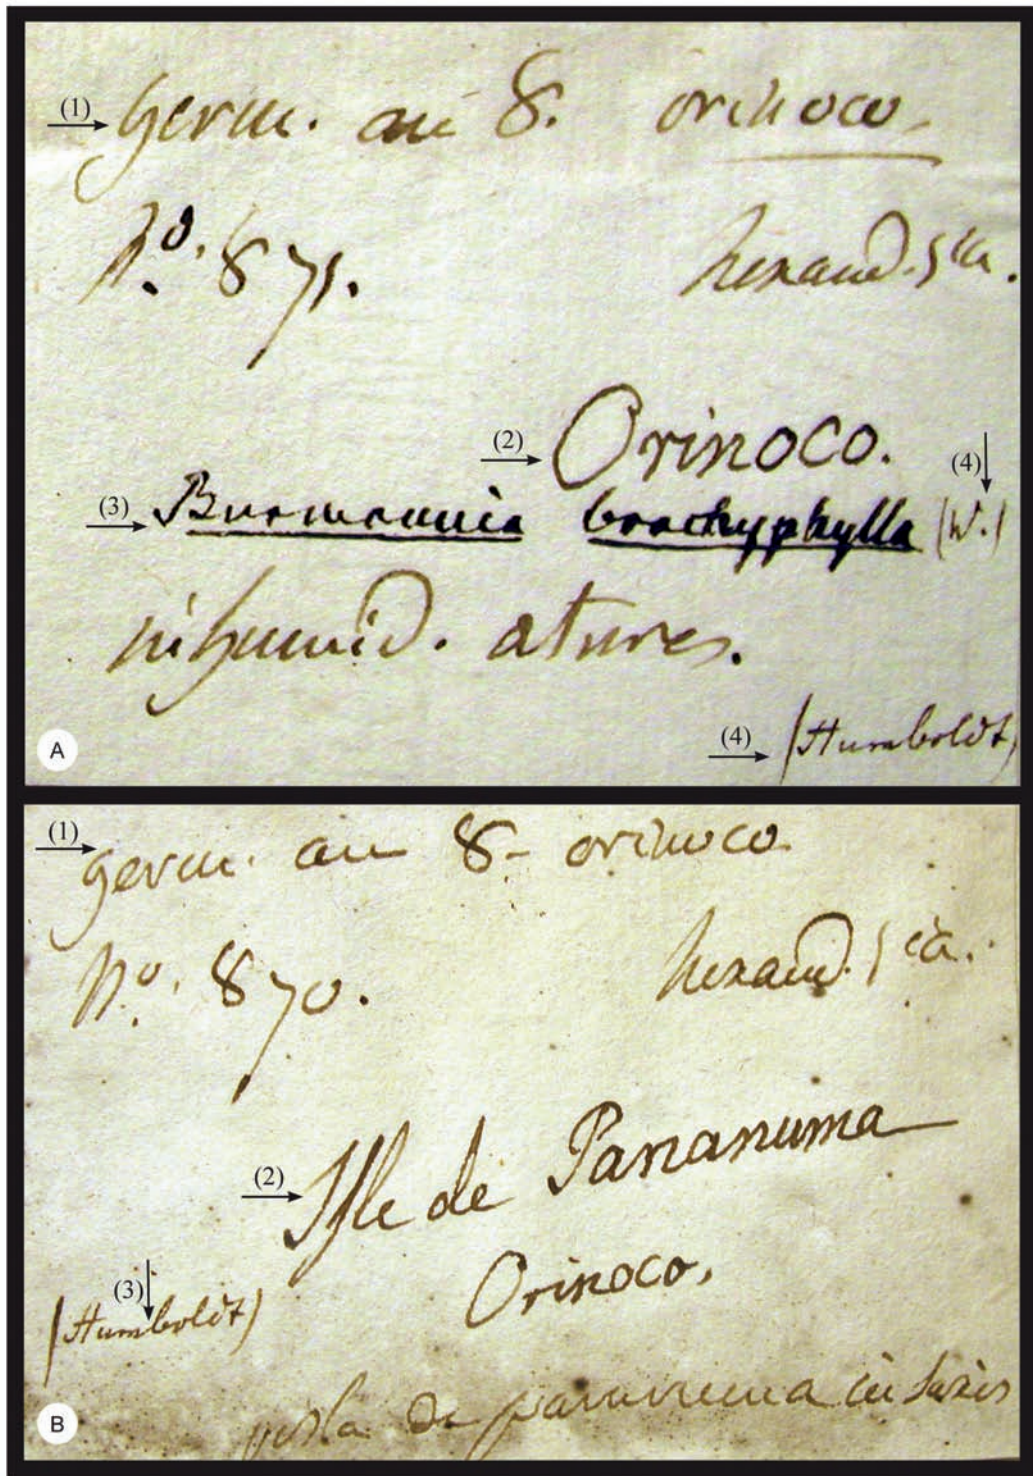 (1) germ. an 8. orinoco.
N.º 871. hexand. 1ia.
(2) Orinoco.
(3) Burmannia brachyphylla (4) (W.)
in humid. atures.
(4) (Humboldt)
A
(1) germ. an 8 - orinoco.
N.º 870. hexand. 1ia.
(2) Isle de Pananuma
Orinoco.
(3) (Humboldt)
isla de panumuma in
B